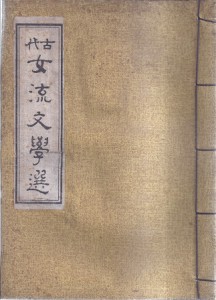 古代女流文學選